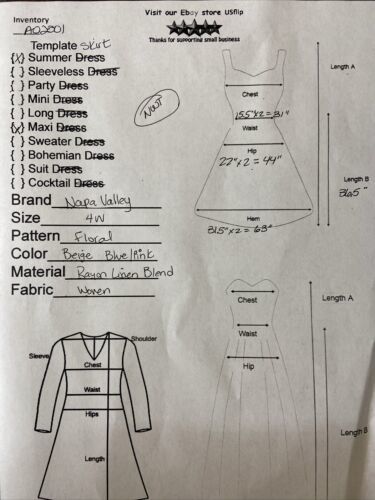 Visit our Ebay store USflip
Inventory
A02001
Thanks for supporting small business
Template Skirt
{X} Summer Dress
{ } Sleeveless Dress
{ } Party Dress
{ } Mini Dress
{ } Long Dress
{X} Maxi Dress
{ } Sweater Dress
{ } Bohemian Dress
{ } Suit Dress
{ } Cocktail Dress
NWT
Brand Napa Valley
Size 4W
Pattern Floral
Color Beige Blue/Pink
Material Rayon Linen Blend
Fabric Woven
Length A
Chest
15.5"x2=31"
Waist
Hip
22"x2=44"
Length B
36.5"
Hem
31.5"x2=63"
Chest
Length A
Waist
Hip
Length B
Shoulder
Sleeve
Chest
Waist
Hips
Length